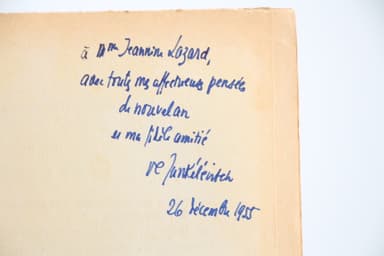 à Mme Jeannine Lazard,
avec toutes mes affectueuses pensées
de nouvel an
et ma fidèle amitié
Vl Jankélévitch
26 décembre 1955